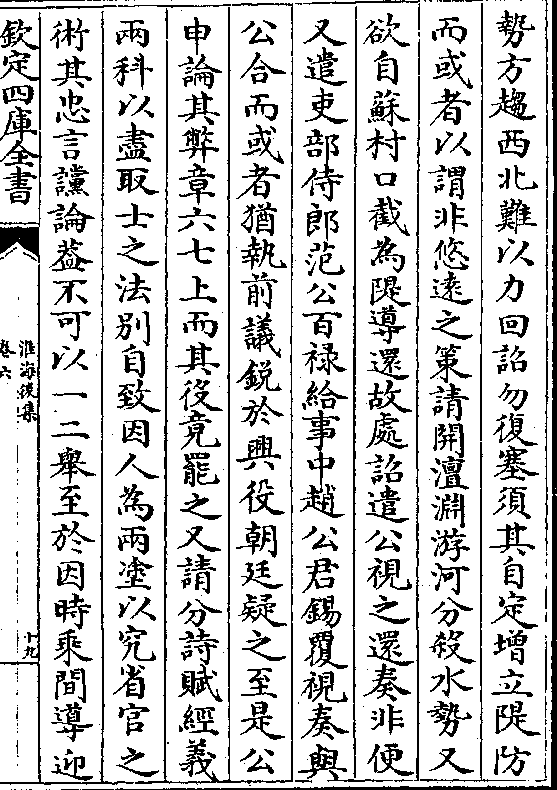 勢方趨西北難以力回詔勿復塞須其自定增立隄防
而或者以謂非悠逺之策請開澶淵游河分殺水勢又
欲自蘇村口截為隄導還故處詔遣公視之還奏非便
又遣吏部侍郎范公百禄給事中趙公君錫覆視奏與
公合而或者猶執前議鋭於興役朝廷疑之至是公
申論其弊章六七上而其役竟罷之又請分詩賦經義
兩科以盡取士之法别自致因人為兩塗以究省官之
術其忠言讜論葢不可以一二舉至於因時乘間導迎
欽定四庫全書
淮海後集
卷六
十九